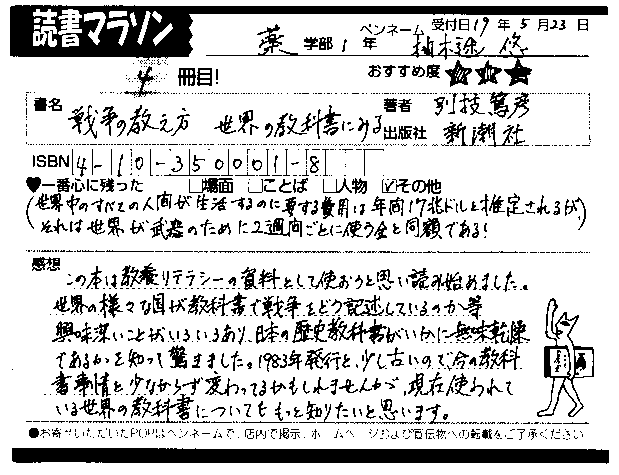 読書マラソン
受付日19年5月23日
薬 学部1年 ペンネーム 柚木 悠
4 冊目! おすすめ度 ★★★
書名 戦争の教え方 世界の教科書にみる
著者 別技篤彦
出版社 新潮社
ISBN 4-10-350001-8
♥一番心に残った □場面 □ことば □人物 ☑その他
(世界中のすべての人間が生活するのに要する費用は年間17兆ドルと推定されるが
それは世界が武器のために2週間ごとに使う金と同額である!)
感想
この本は教養リテラシーの資料として使おうと思い読み始めました。
世界の様々な国が教科書で戦争をどう記述しているのか等
興味深いことがいろいろあり、日本の歴史教科書がいかに無味乾燥
であるかを知って驚きました。1983年発行と、少し古いので、今の教科
書事情と少なからず変わってるかもしれませんが、現在使われて
いる世界の教科書についてももっと知りたいと思います。
●お寄せいただいたPOPはペンネームで、店内で掲示、ホームページおよび宣伝物への転載をご了承ください